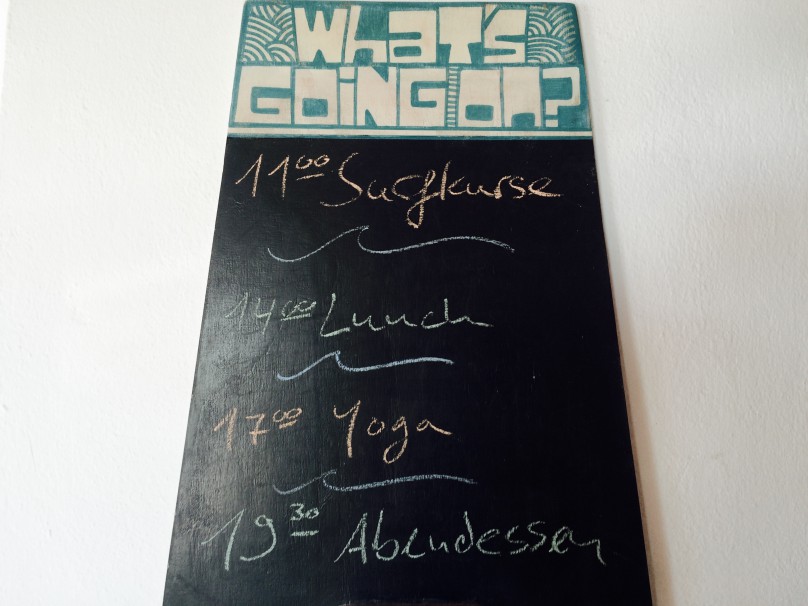 WHAT'S
GOING ON?
11⁰⁰ Surfkurse
14⁰⁰ Lunch
17⁰⁰ Yoga
19³⁰ Abendessen